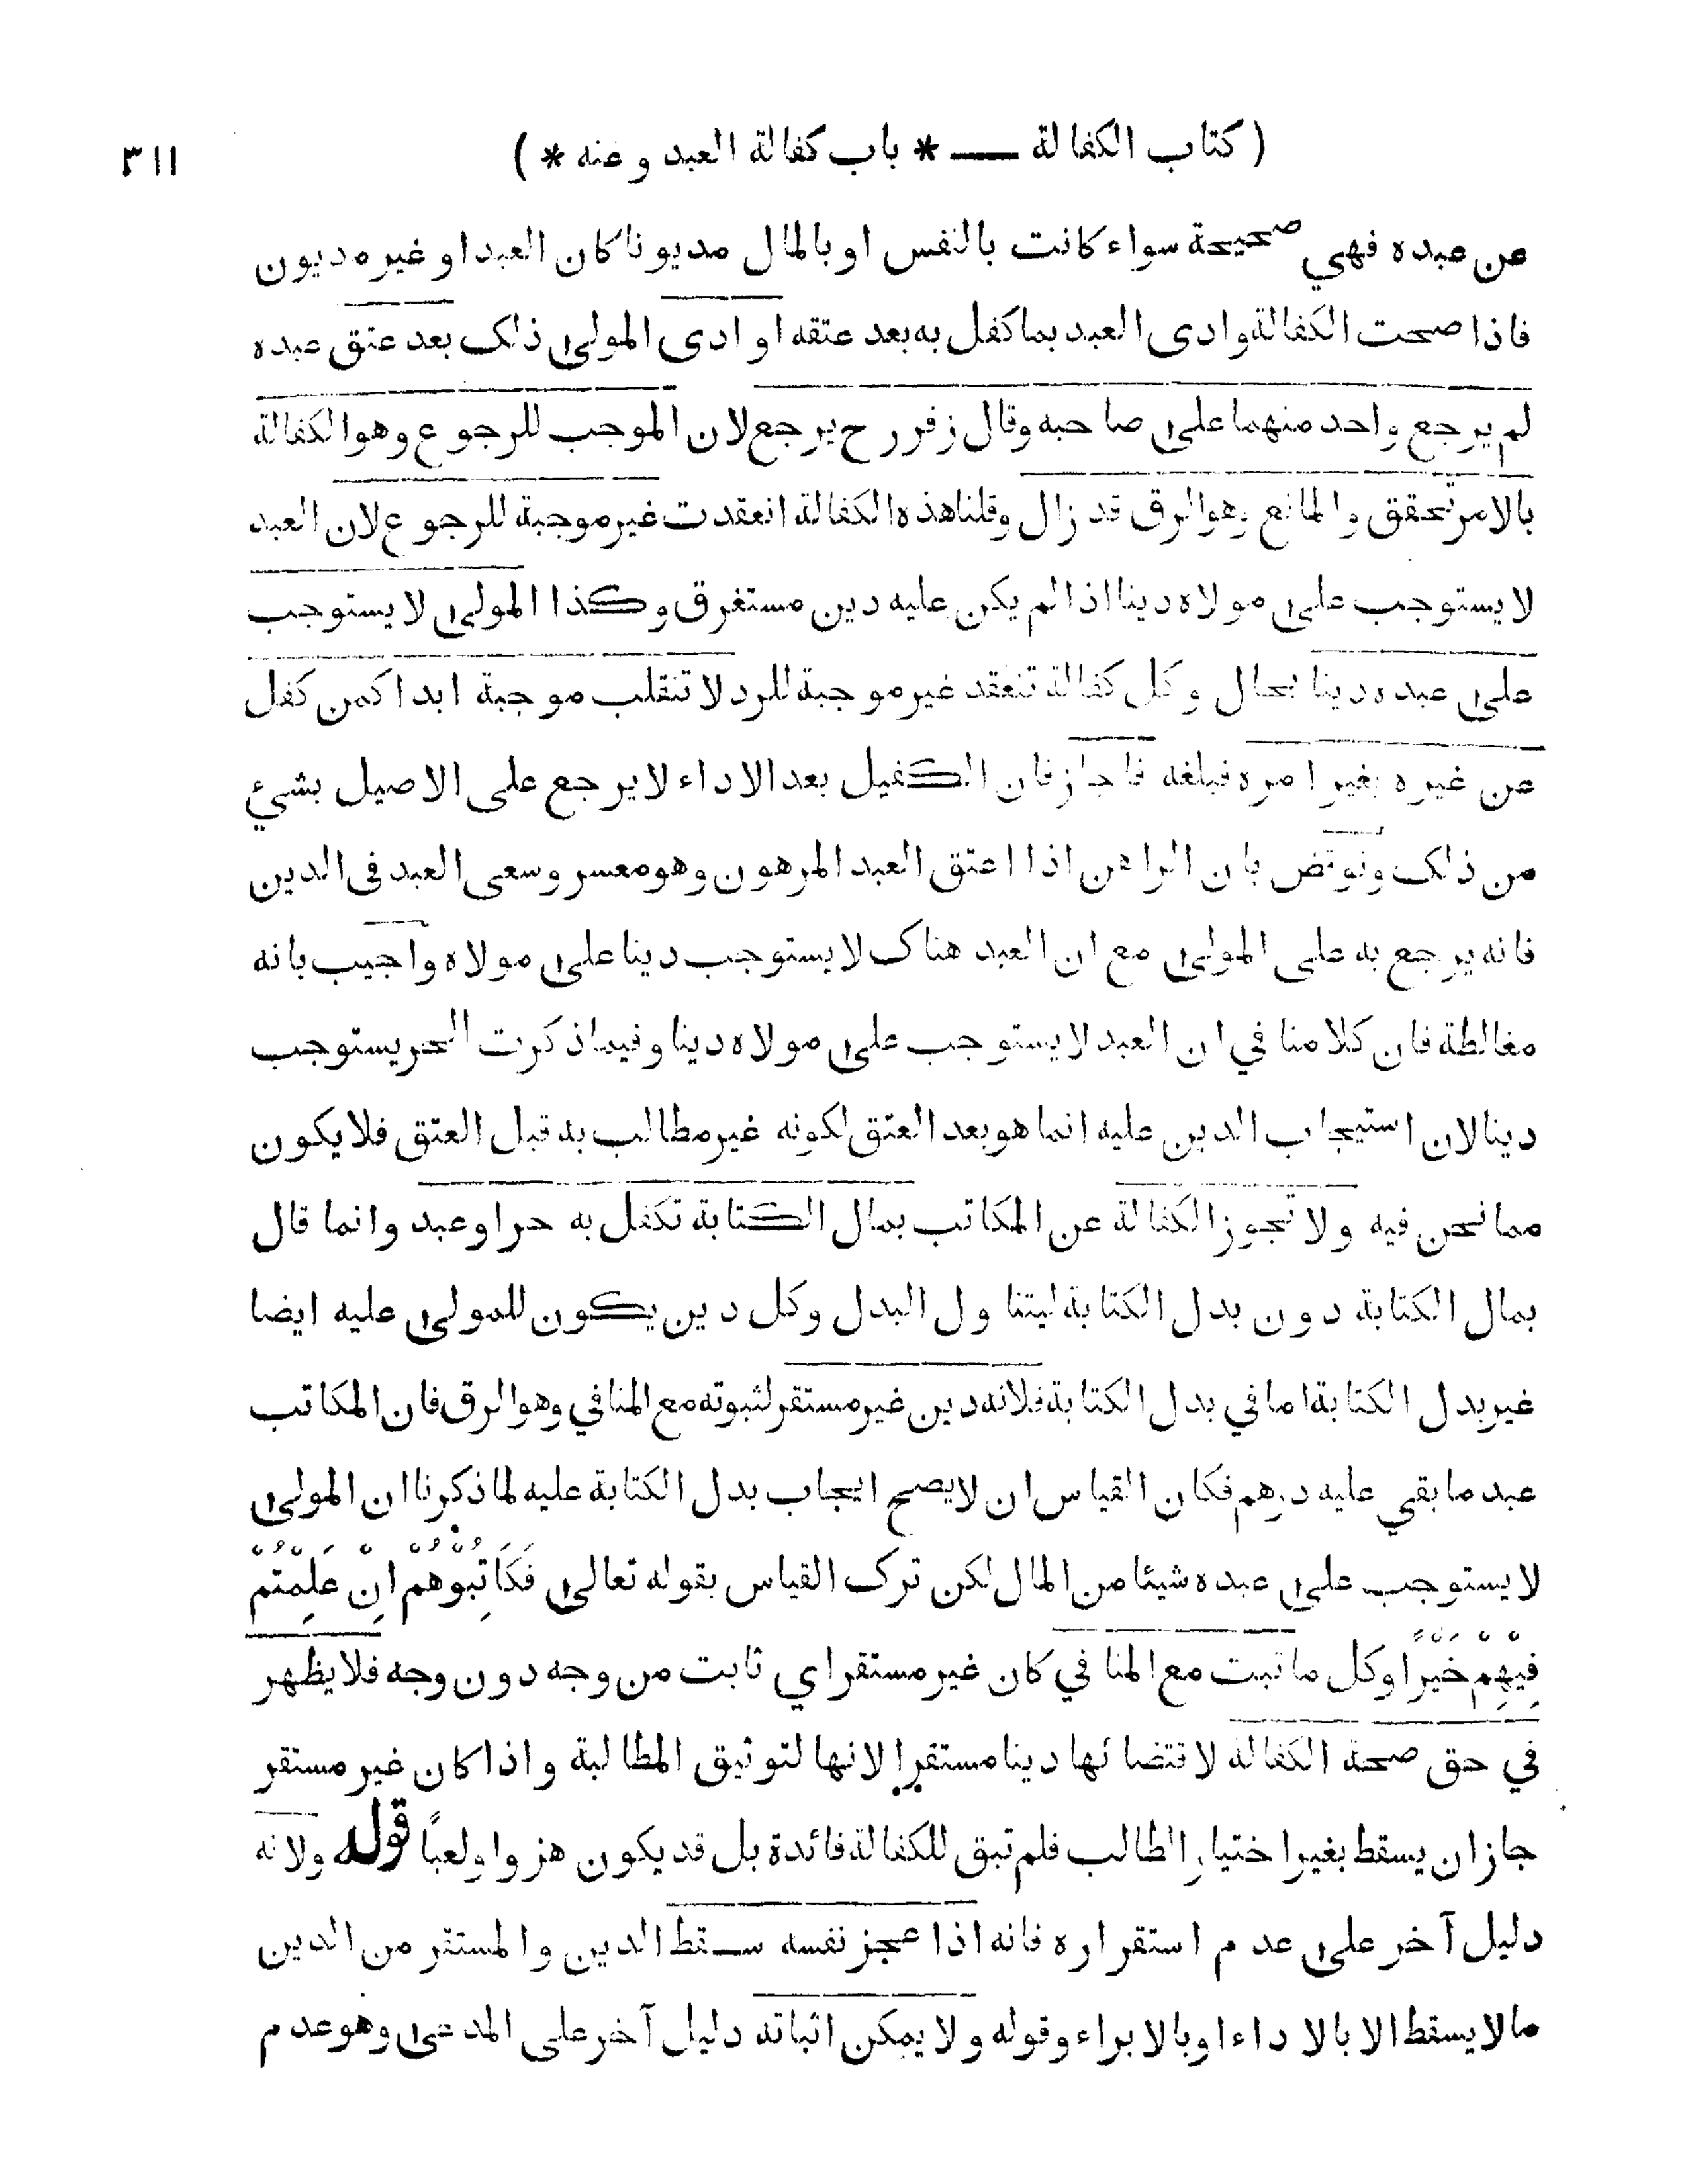 ( كتاب الكفالة — * باب كفالة العبد وعنه * ) ٣١١
عن عبده فهي صحيحة سواء كانت بالنفس او بالمال مديونا كان العبد او غير مديون
فاذا صحت الكفالة وادى العبد بما كفل به بعد عتقه او ادى المولى ذلك بعد عتق عبده
لم يرجع واحد منهما على صاحبه وقال زفر رح يرجع لان الموجب للرجوع وهو الكفالة
بالامر تحقق والمانع وهو الرق قد زال وقلنا هذه الكفالة انعقدت غير موجبة للرجوع لان العبد
لا يستوجب على مولاه دينا اذا لم يكن عليه دين مستغرق وكذا المولى لا يستوجب
على عبده دينا بحال وكل كفالة تنعقد غير موجبة للرد لا تنقلب موجبة ابدا كمن كفل
عن غيره بغير امره فبلغه فاجاز فان الكفيل بعد الاداء لا يرجع على الاصيل بشئ
من ذلك ونوقض بان الراهن اذا اعتق العبد المرهون وهو معسر وسعى العبد في الدين
فانه يرجع به على المولى مع ان العبد هناك لا يستوجب دينا على مولاه واجيب بانه
مغالطة فان كلامنا في ان العبد لا يستوجب على مولاه دينا وفيما ذكرت الحر يستوجب
دينا لان استيجاب الدين عليه انما هو بعد العتق لكونه غير مطالب به قبل العتق فلا يكون
مما نحن فيه ولا تجوز الكفالة عن المكاتب بمال الكتابة تكفل به حر او عبد وانما قال
بمال الكتابة دون بدل الكتابة ليتناول البدل وكل دين يكون للمولى عليه ايضا
غير بدل الكتابة اما في بدل الكتابة فلانه دين غير مستقر لثبوته مع المنافي وهو الرق فان المكاتب
عبد ما بقي عليه درهم فكان القياس ان لا يصح ايجاب بدل الكتابة عليه لما ذكرنا ان المولى
لا يستوجب على عبده شيئا من المال لكن ترك القياس بقوله تعالى فَكَاتِبُوْهُمْ اِنْ عَلِمْتُمْ
فِيْهِمْ خَيْرًا وكل ما ثبت مع المنافي كان غير مستقر اي ثابت من وجه دون وجه فلا يظهر
في حق صحة الكفالة لاقتضائها دينا مستقرا لانها لتوثيق المطالبة واذا كان غير مستقر
جاز ان يسقط بغير اختيار الطالب فلم تبق للكفالة فائدة بل قد يكون هزوا ولعباً قوله ولانه
دليل آخر على عدم استقراره فانه اذا عجز نفسه سقط الدين والمستقر من الدين
مالا يسقط الا بالاداء او بالابراء وقوله ولا يمكن اثباته دليل آخر على المدعى وهو عدم